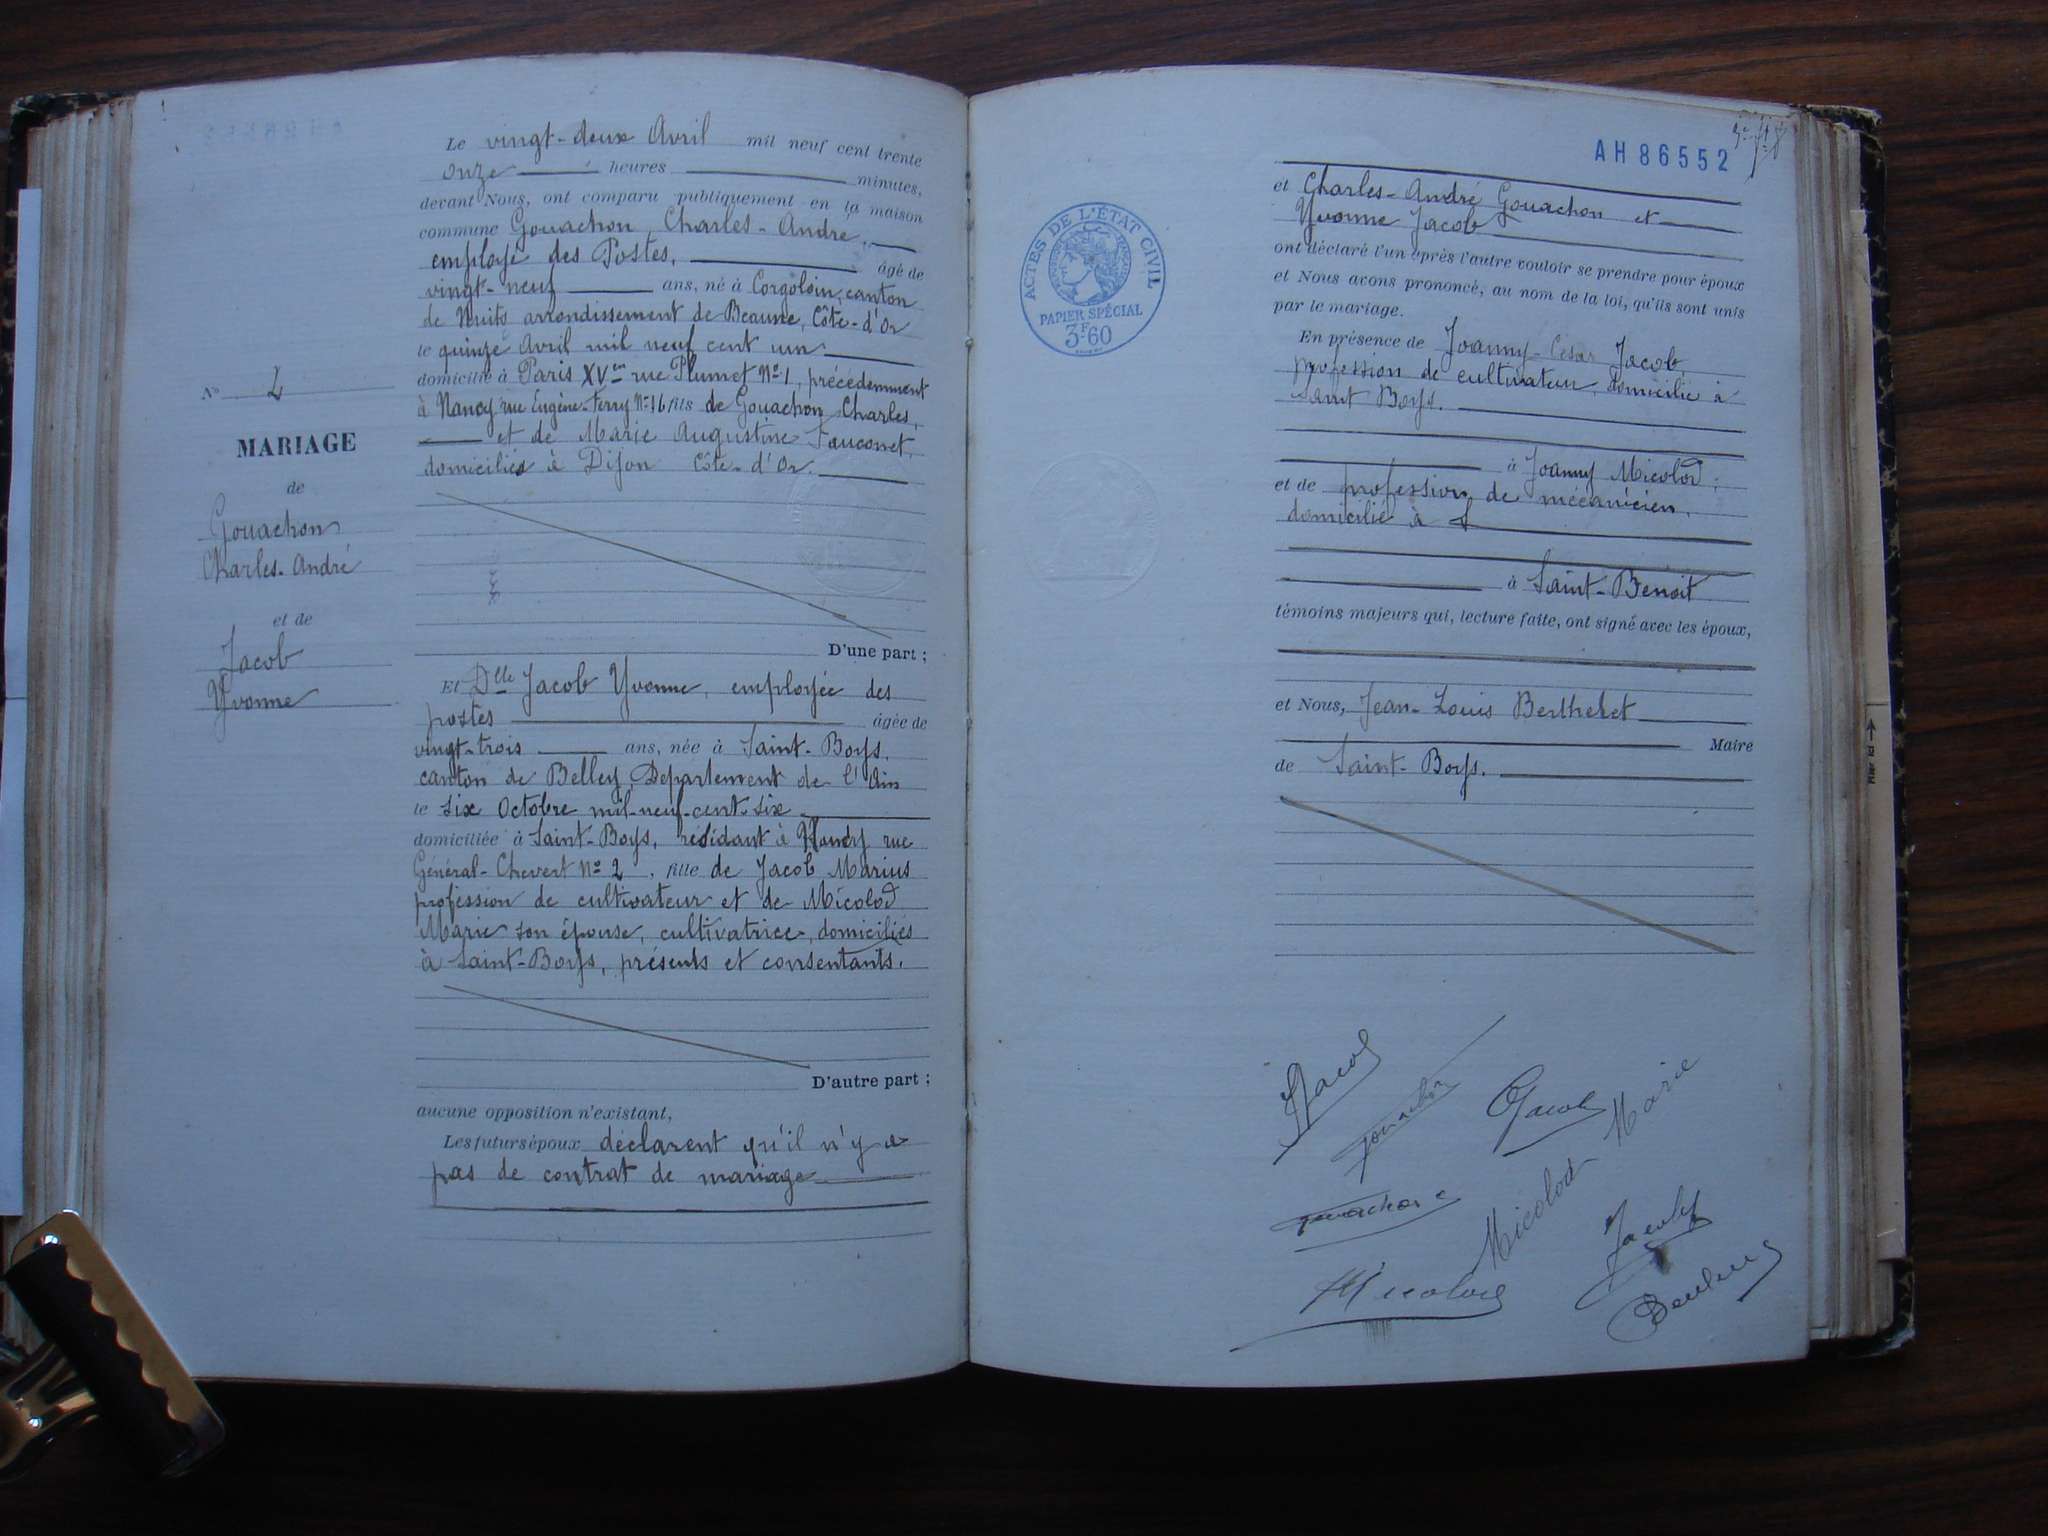 Le vingt-deux Avril mil neuf cent trente
onze heures minutes,
devant Nous, ont comparu publiquement en la maison
commune Gouachon Charles-André,
employé des Postes, âgé de
vingt-neuf ans, né à Corgoloin, canton
de Nuits arrondissement de Beaune, Côte-d'Or
le quinze Avril mil neuf cent un
domicilié à Paris XVem rue Plumet No 1, précédemment
à Nancy rue Eugène-Ferry No 16 fils de Gouachon Charles,
et de Marie Augustine Fauconet,
domiciliés à Dijon Côte-d'Or.
D'une part ;
No 2
MARIAGE
de
Gouachon
Charles-André
et de
Jacob
Yvonne
Et Dlle Jacob Yvonne, employée des
postes âgée de
vingt-trois ans, née à Saint-Boys,
canton de Belley, Département de l'Ain
le six Octobre mil-neuf-cent-six
domiciliée à Saint-Boys, résidant à Nancy rue
Général-Chevert No 2, fille de Jacob Marius
profession de cultivateur et de Micolod
Marie son épouse, cultivatrice, domiciliés
à Saint-Boys, présents et consentants.
D'autre part ;
aucune opposition n'existant,
Les futurs époux déclarent qu'il n'y a
pas de contrat de mariage
AH 86552
ACTES DE L'ÉTAT CIVIL
PAPIER SPÉCIAL
3F60
et Charles-André Gouachon et
Yvonne Jacob
ont déclaré l'un après l'autre vouloir se prendre pour époux
et Nous avons prononcé, au nom de la loi, qu'ils sont unis
par le mariage.
En présence de Joanny-César Jacob,
profession de cultivateur, domicilié à
Saint Boys.
à Joanny Micolod,
et de profession de mécanicien,
domicilié à
à Saint-Benoit
témoins majeurs qui, lecture faite, ont signé avec les époux,
et Nous, Jean-Louis Berthelet
Maire
de Saint-Boys.
Jacob
Gouachon
Jacob
Micolod Marie
Gouachon
Micolod